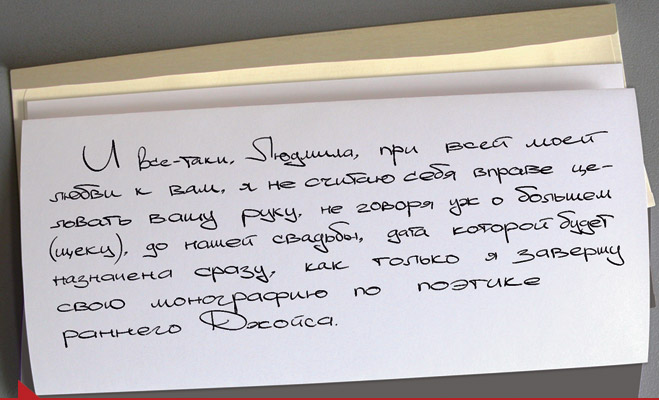 И все-таки, Людмила, при всей моей
любви к вам, я не считаю себя вправе це-
ловать вашу руку, не говоря уж о большем
(щеку), до нашей свадьбы, дата которой будет
назначена сразу, как только я завершу
свою монографию по поэтике
раннего Джойса.